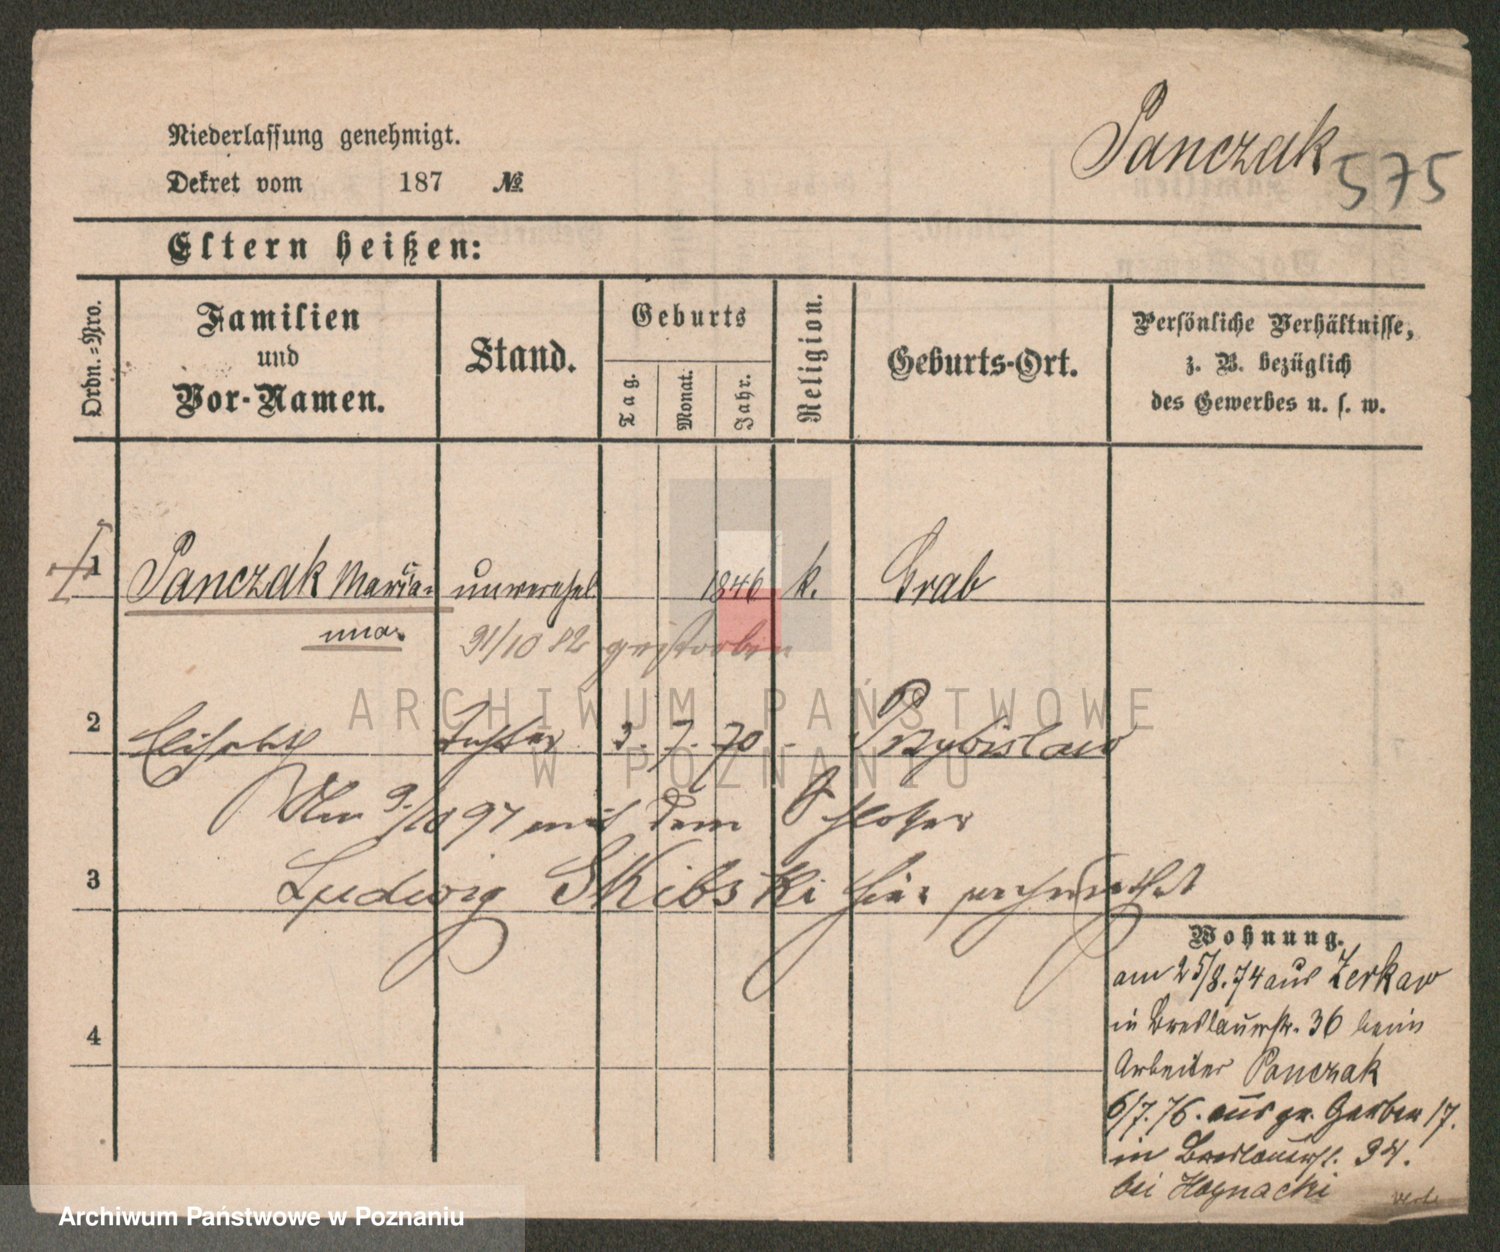 Niederlassung genehmigt.
Dekret vom 187 №
Panczak 575
Eltern heißen:
Ordn.=Nro.
Familien
und
Vor-Namen.
Stand.
Geburts
Tag.
Monat.
Jahr.
Religion.
Geburts-Ort.
Persönliche Verhältnisse,
z. B. bezüglich
des Gewerbes u. s. w.
1 Panczak Marian= unverehel. 1846 k. Grab
na
31/10 82 gestorben
2 Elisabeth Tochter 3. 7. 70 - Przybislaw
Am 9./10 97 mit dem Schlosser
3 Ludwig Skibski hier verheirathet
Wohnung.
am 25/8.74 aus Zerkow
in Breslauerstr. 36 beim
4
Arbeiter Panczak
6/7.76. aus gr. Gerber 17.
in Breslauerstr. 34.
bei
ARCHIWUM PAŃSTWOWE
W POZNANIU
Archiwum Państwowe w Poznaniu